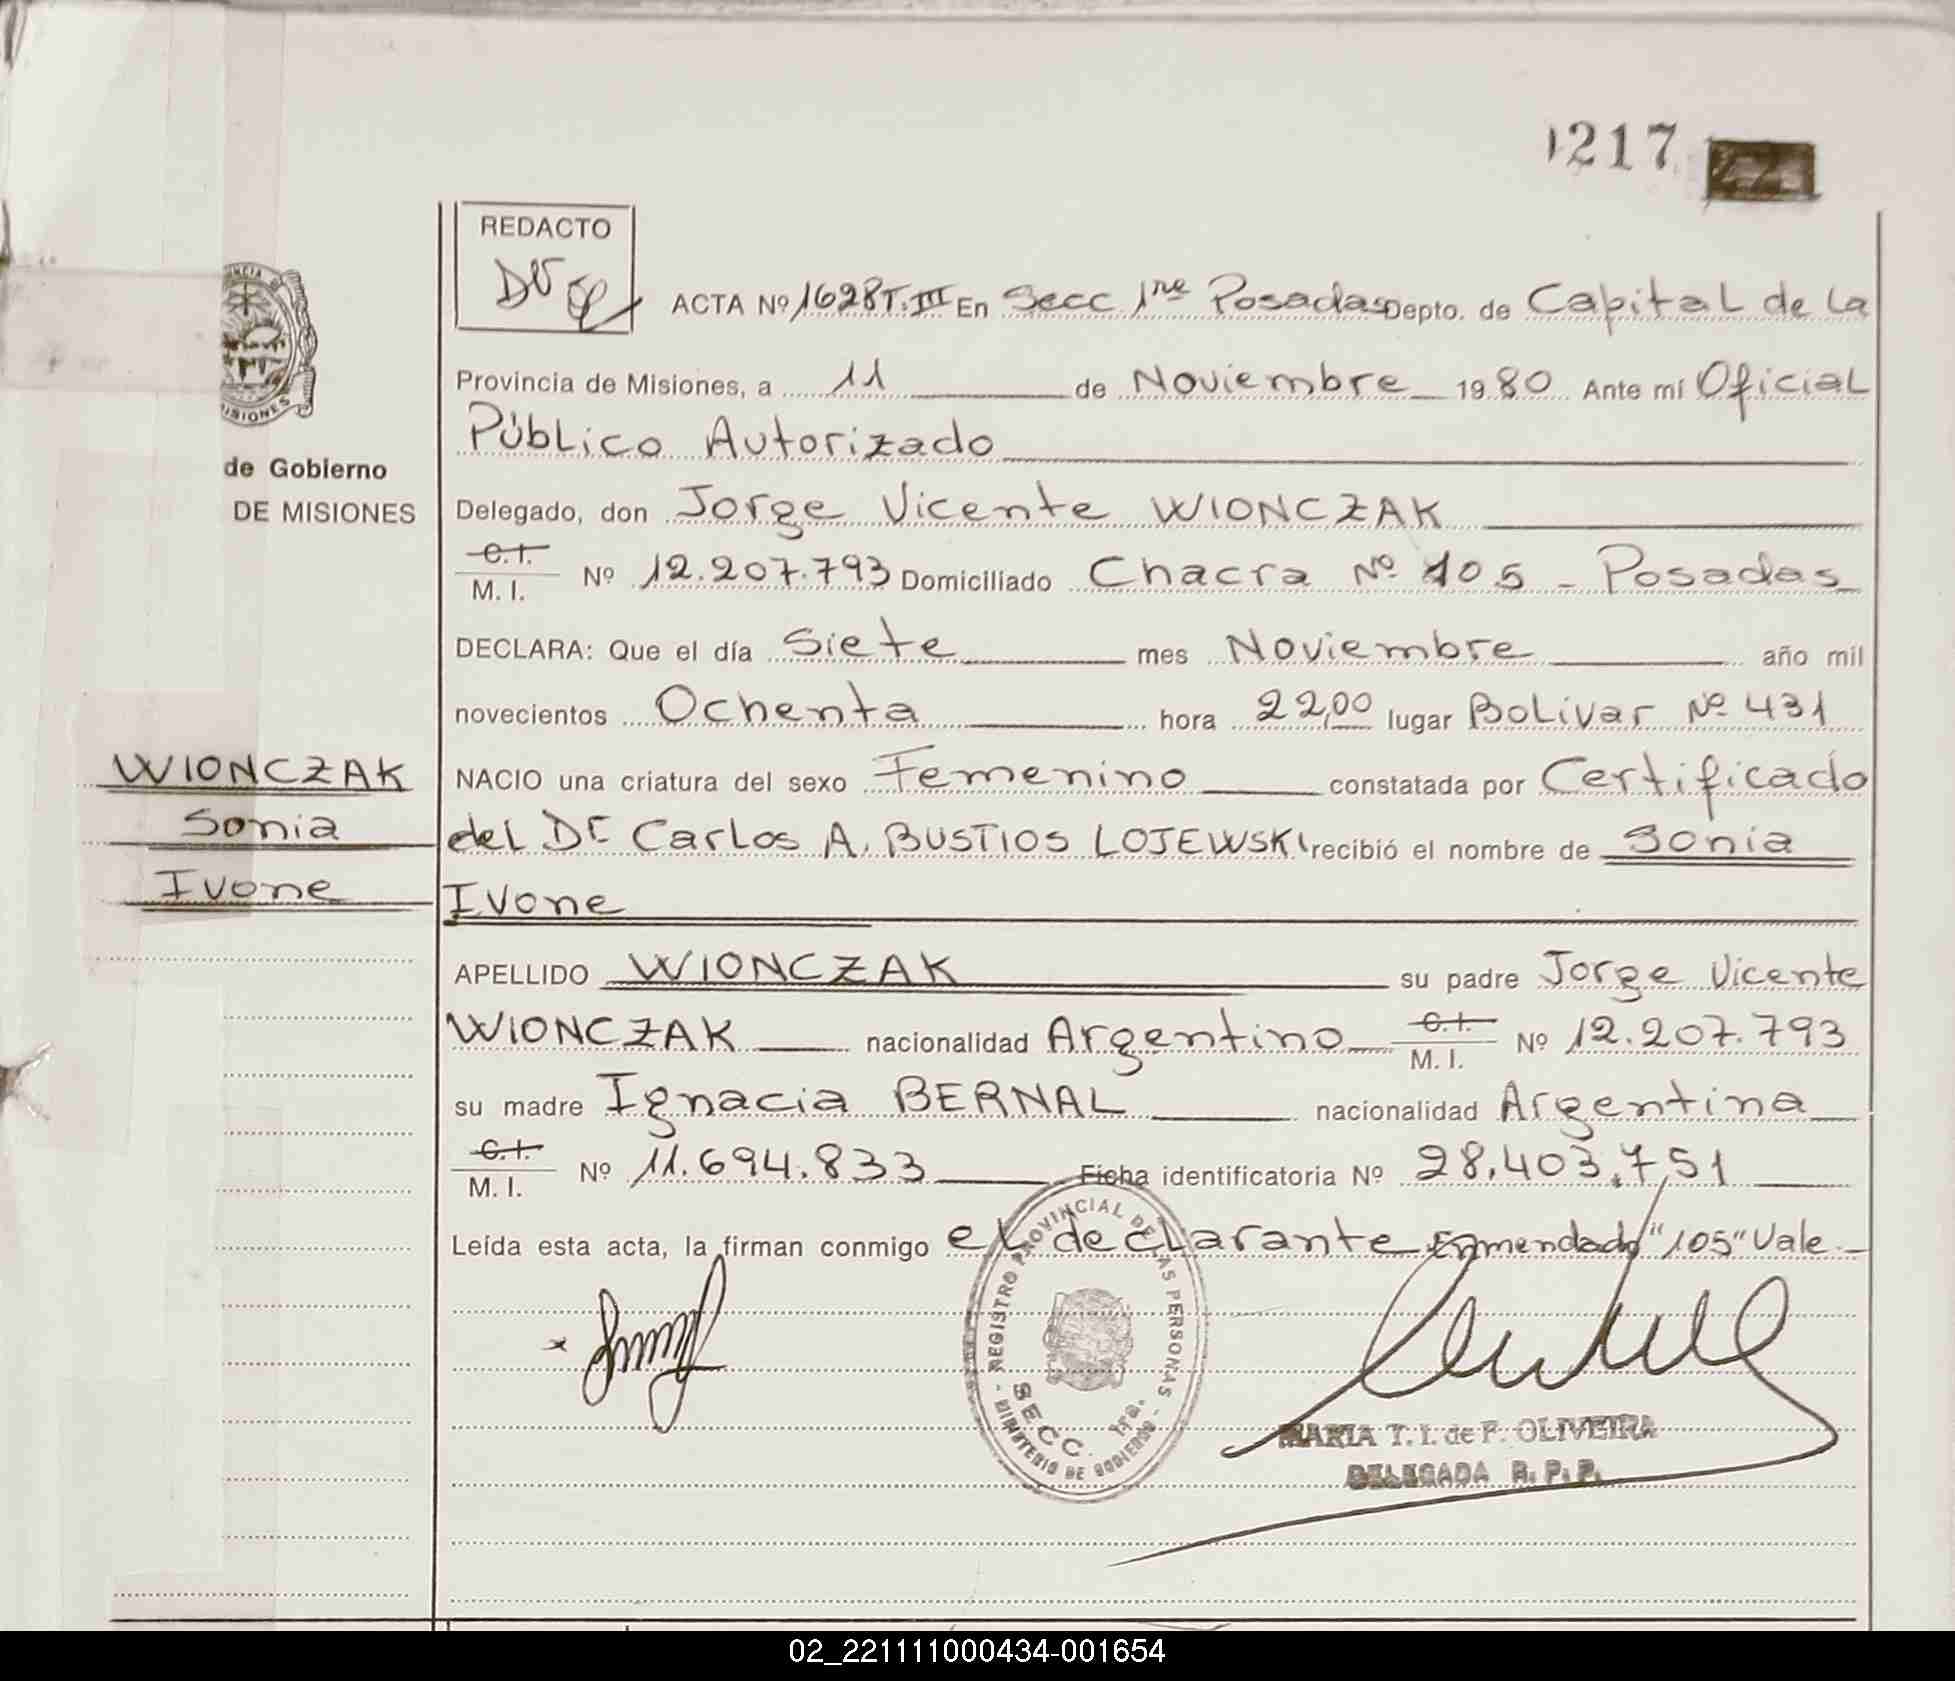 217
REDACTO
ACTA Nº 1628 T. III En Secc 1ra Posadas Depto. de Capital de La
Provincia de Misiones, a 11 de Noviembre 1980 Ante mí Oficial
Público Autorizado
de Gobierno
DE MISIONES
Delegado, don Jorge Vicente WIONCZAK
C.I.
M. I. Nº 12.207.793 Domiciliado Chacra Nº 105 - Posadas
DECLARA: Que el día Siete mes Noviembre año mil
novecientos Ochenta hora 22,00 lugar Bolivar Nº 431
WIONCZAK
Sonia
Ivone
NACIO una criatura del sexo Femenino constatada por Certificado
del Dr Carlos A. BUSTIOS LOJEWSKI recibió el nombre de Sonia
Ivone
APELLIDO WIONCZAK su padre Jorge Vicente
WIONCZAK nacionalidad Argentino C.I. M. I. Nº 12.207.793
su madre Ignacia BERNAL nacionalidad Argentina
C.I.
M. I. Nº 11.694.833 Ficha identificatoria Nº 28.403.751
Leída esta acta, la firman conmigo el declarante Enmendado "105" Vale.-
REGISTRO PROVINCIAL DE LAS PERSONAS
SECC. 1ra.
MINISTERIO DE GOBIERNO
MARIA T. I. de F. OLIVEIRA
DELEGADA R. P. P.
02_221111000434-001654